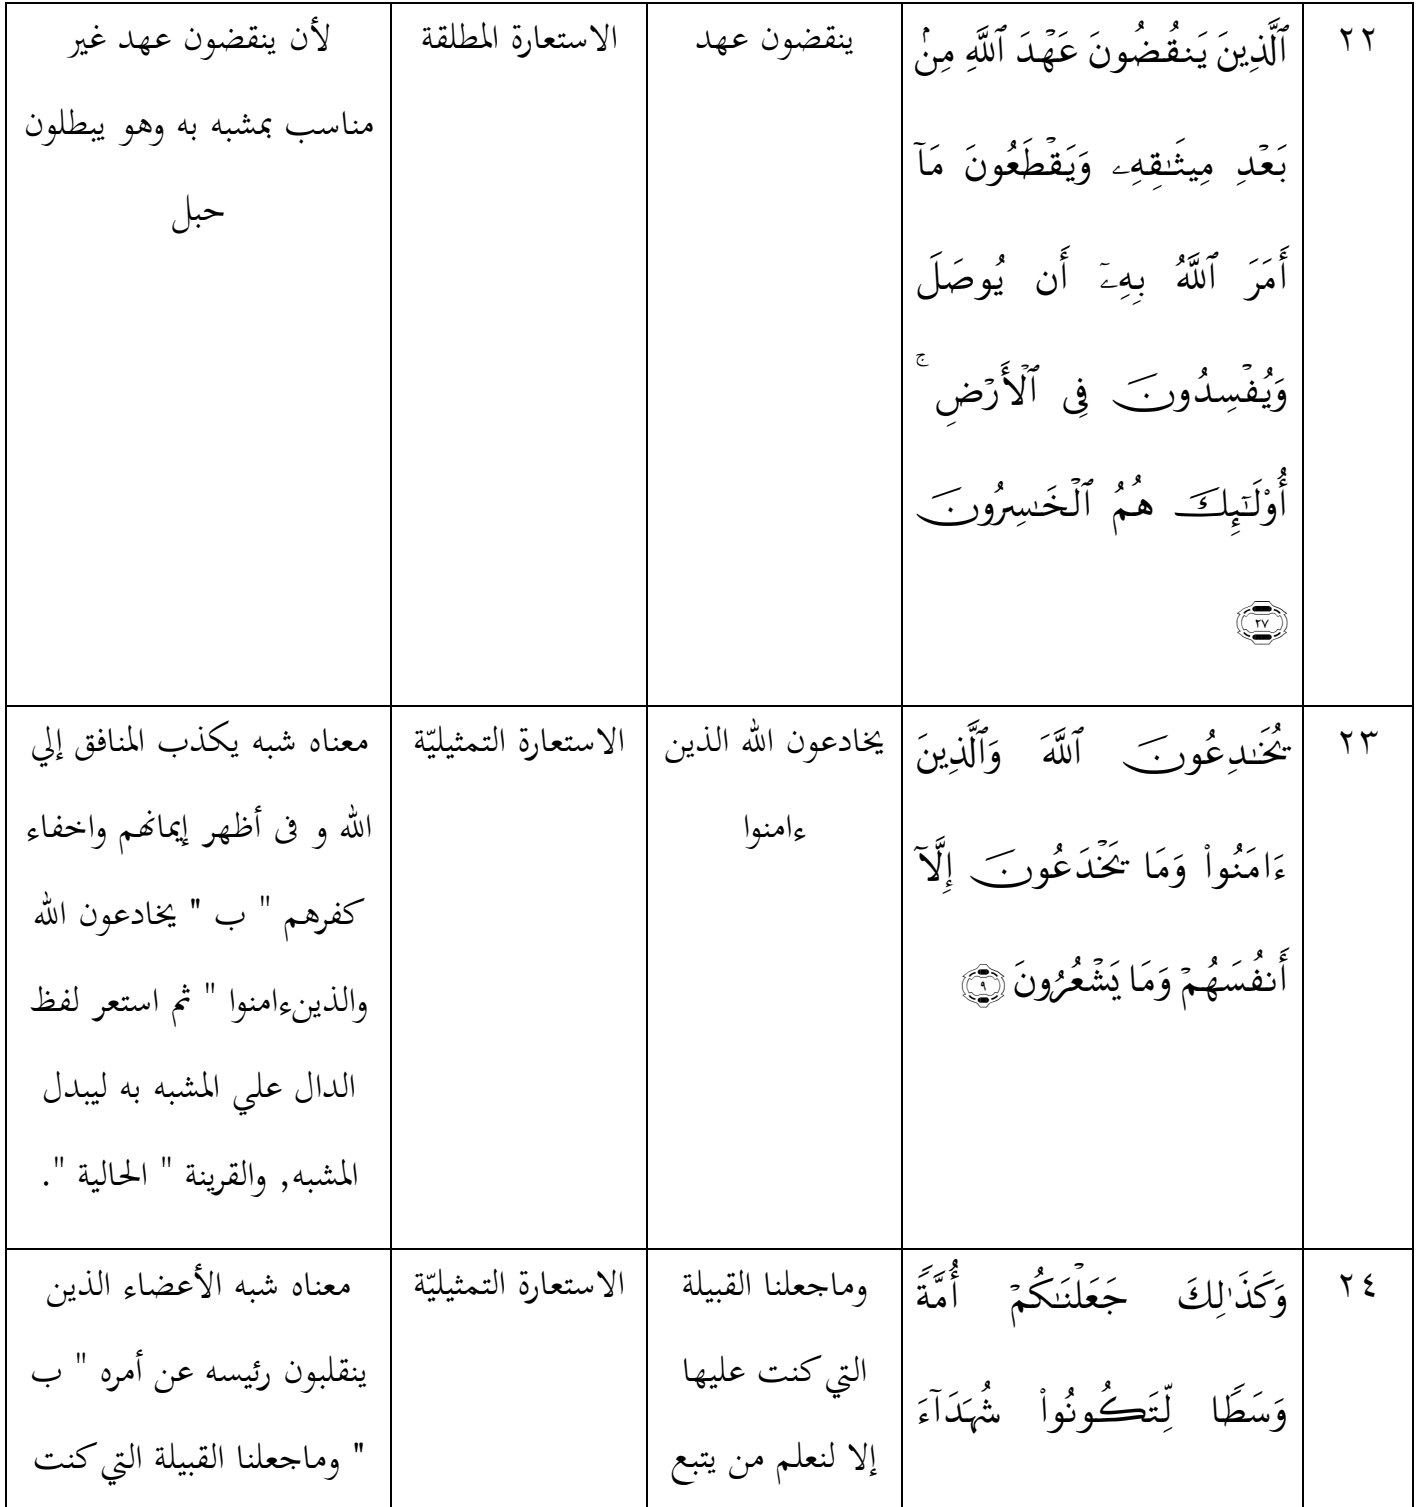 ٢٢
ٱلَّذِينَ يَنقُضُونَ عَهْدَ ٱللَّهِ مِنۢ
بَعْدِ مِيثَـٰقِهِۦ وَيَقْطَعُونَ مَآ
أَمَرَ ٱللَّهُ بِهِۦٓ أَن يُوصَلَ
وَيُفْسِدُونَ فِى ٱلْأَرْضِ ۚ
أُو۟لَـٰٓئِكَ هُمُ ٱلْخَـٰسِرُونَ
٢٧
ينقضون عهد
الاستعارة المطلقة
لأن ينقضون عهد غير
مناسب بمشبه به وهو يبطلون
حبل
٢٣
يُخَـٰدِعُونَ ٱللَّهَ وَٱلَّذِينَ
ءَامَنُوا۟ وَمَا يَخْدَعُونَ إِلَّآ
أَنفُسَهُمْ وَمَا يَشْعُرُونَ ٩
يخادعون الله الذين
ءامنوا
الاستعارة التمثيليّة
معناه شبه يكذب المنافق إلي
الله و فى أظهر إيمانهم واخفاء
كفرهم " ب " يخادعون الله
والذينءامنوا " ثم استعر لفظ
الدال علي المشبه به ليبدل
المشبه, والقرينة " الحالية ".
٢٤
وَكَذَٰلِكَ جَعَلْنَـٰكُمْ أُمَّةً
وَسَطًا لِّتَكُونُوا۟ شُهَدَآءَ
وماجعلنا القبيلة
التي كنت عليها
إلا لنعلم من يتبع
الاستعارة التمثيليّة
معناه شبه الأعضاء الذين
ينقلبون رئيسه عن أمره " ب
" وماجعلنا القبيلة التي كنت